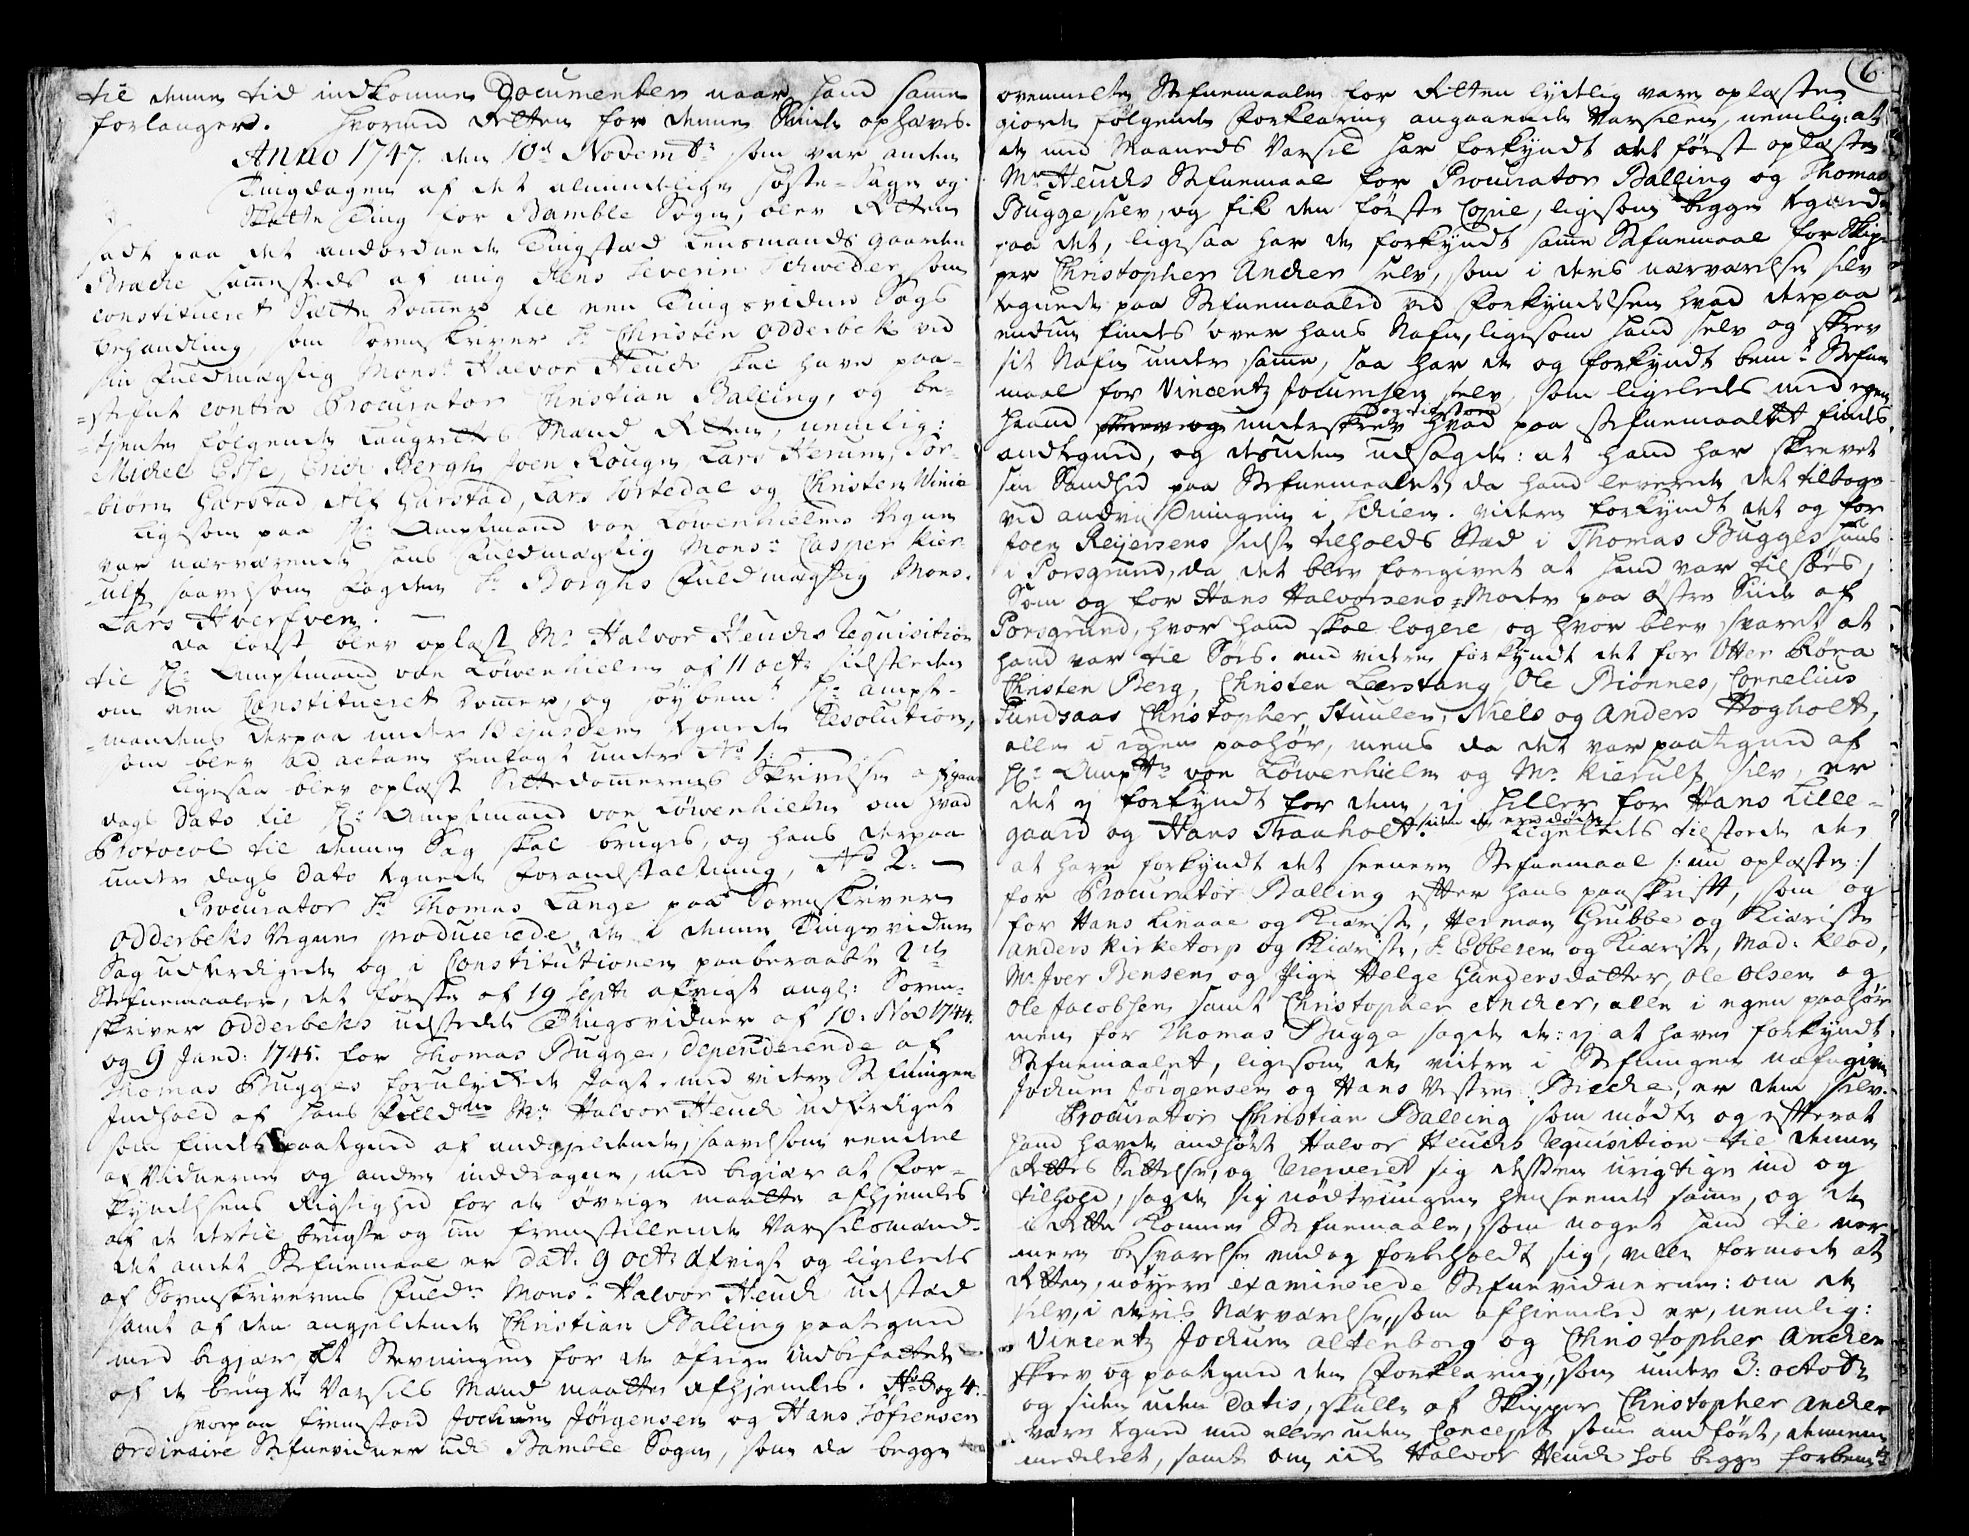 til denne tid indkomne Documenter naar hand samme
forlanger. Hvormed Retten for denne Sinde ophæves.
Anno 1747. den 10de Novembr: som var anden
Tingdagen af det almindelige Høste-Sage og
Skatte Ting for Bamble Sogn, blev Retten
sadt paa det anordnede Tingsted Lensmands gaarden
Bræche sammesteds af mig Jens Severin Schweder som
constitueret Sætte Dommer til een Tingsvidne Sags
behandling, som Sorenskriver Sr. Christen Odderbek ved
sin Fuldmægtig Monsr. Halvor Heuch skal have paa-
-stefnt contra Procurator Christian Balling, og be-
-tiente følgende Laugrettes Mænd Retten, nemlig:
Michel Esse, Erich Bergh, Joen Rougn, Lars Herum, Tor-
-biørn Hafstad, Alf Hafstad, Lars Tortedal og Christen Vinie
Ligesom paa Hr. Amptmand von Løwenhielms Vegne
var nærværende hans Fuldmægtig Monsr. Casper Kier-
-ulf, saavelsom Fogden Sr. Borghs Fuldmægtig Mons.
Lars Hverfven.
Da først blev oplæst Mr. Halvor Heuchs Requisition
til Hr. Amptmand von Løwenhielm af 11 octr. sidstleden
om een Constitueret Dommer, og høybemte Hr. ampt-
-mandens derpaa under Bejusdem tegnede Resolution,
som blev ad actam henlagt under No 1.
Ligesaa blev oplæst Sættedommerens Skrivelse af
dags Dato til Hr. Amptmand von Løwenhielm om hvad
Protocol til denne Sag skal bruges, og hans derpaa
under dags dato tegnede foranstaltning, No 2.
Procurator Sr. Thomas Lange paa Sorenskriver
Odderbeks Vegne producerede de i denne Tingsvidne
Sag udfærdigede og i Constitutionen paaberaabte 2de
Stefnemaaler, det første af 19 Septr. afvigt angl: Soren-
skriver Odderbeks udstedde Tingsvidner af 10: Nov 1744.
og 9 Janr: 1745. for Thomas Bugge, dependerende af
Thomas Bugges forulykkede Jagt. med videre Stefningens
Indhold af hans Fuldmr. Mr. Halvor Heuch udfærdiget
som findes paategned af andgjeldende, saavelsom eendeel
af Vidnerne og andre inddragne, med begiær at For-
kyndelsens Rigtighed for de øvrige maatte afhjemles
af de dertil brugte og nu fremstillende Varselsmænd.
det andet Stefnemaal er dat: 9 octr. afvigt og ligeledes
af Sorenskriverens Fuldm: Monsr. Halvor Heuch udstæd
samt af den angjeldende Christian Balling paategned
med begjær, at Stevningen for de øfrige indbefattede
af de brugte Varsels Mænd maatte afhjemles. No 3 og 4.
Hvorpaa fremstod Jochum Jørgensen og Hans Tofrensen
ordinaire Stefnevidner udi Bamble Sogn, som da begge
6.
ovenmelte Stefnemaaler for Retten lydelig vare oplæste
giorde følgende Forklaring angaaende Varselen, nemlig: at
de med Maaneds Varsel har forkyndt det først oplæste
Mr. Heuchs Stefnemaal for Procurator Balling og Thomas
Bugge selv, og fik den første Copie, ligesom begge tegnede
paa det, ligesaa har de forkyndt samme Stefnemaal for Skip-
per Christopher Ancher selv, som i deris nærværelse selv
tegnede paa Stefnemaaled ved Forkyndelsen hvad derpaa
endnu findes over hans Nafn, ligesom hand selv og skrev
sit Nafn under samme, saa har de og forkyndt bemte Stefne-
maal for Vincentz Jochumsen selv, som ligeleds med egen
Haand underskrev hvad paa stefnemaalet findes
andtegned, og desuden udsagde: at hand har skrevet
sin Sandhed paa Stefnemaalet, da hand leverede det tilbage
ved andre Stevningen i Schien. videre forkyndt det og for
Joen Reijersens sidste tilholds Stæd i Thomas Bugges huus
i Porsgrund, da det blev foregivet at hand var til Søes,
Som og for Hans Halvorsens Moder paa østre Side af
Porsgrund, hvor hand skal logere, og hvor blev svaret at
hand var til Søes. end videre forkyndt det for Otter Røra
Christen Berg, Christen Leerstang, Ole Biønnes, Cornelius
Fundsaas Christopher Stuulen, Niels og Anders Hogholt,
alle i egen paahør, mens da det var paategned af
Hr. Amptm. von Løwenhielm og Mr. Kierulf selv, er
det ej forkyndt for dem, ej heller for Hans Lille-
gaard og Hans Traaholt, siden de ere døde. Ligeledes tilstode de,
at have forkyndt det seenere Stefnemaal /: nu oplæste :/
for Procurator Balling efter hans paaskrift, som og
for Hans Linaae og Kiæriste, Herman Grubbe og Kiæriste
Anders Kirketorp og Kiæriste, S. Ebbesen og Kiæriste, Mad: Klod,
Mr. Iver Bensen og Pige Helge Gundersdatter, Ole Olsen og
Ole Jacobsen samt Christopher Ancher, alle i egen paahør
men for Thomas Bugge sagde de: ej at have forkyndt
Stefnemaalet, ligesom de videre i Stefningen nafngivne
Jochum Jørgensen og Hans Vestre Bræche, er dem selv.
Procurator Christian Balling som mødte og efter at
hand havde anhørt Halvor Heuchs Requisition til denne
Rettes Settelse, og reserveret sig dessen urigtige ind og
tilhold, sagde sig nødtvungen henseende samme, og de
i Rette komne Stefnemaale, som noget hand til nær-
mere besvarelse endog forbeholdt sig, ville formode at
Retten, nøyere examinerede Stefnevidnerne: om de
selv, i deris Nærværelse, som afhjemled er, nemlig:
Vincentz Jochum altenborg og Christopher Ancher
skrev og paategned den Forklaring, som under 3: octobr
og siden uden Datis, skulle af Skipper Christopher Ancher
være tegned med eller uden Concept som andført, dennem
meddelet, samt om ikke Halvor Heuch hos begge forbemte